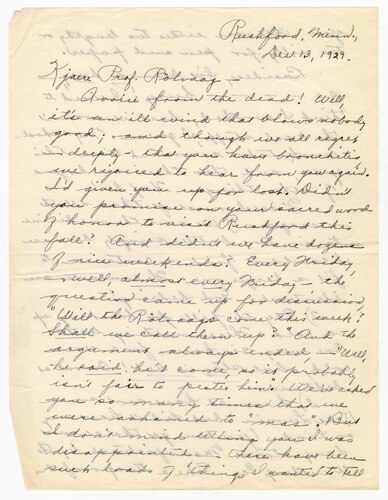 Rushford, Minn.,
Dec. 13, 1929.
Kjaere Prof. Rölvaag –
A voice from the dead! Well,
it's an ill wind that blows nobody
good; and though we all regret
deeply that you have bronchitis,
we rejoiced to hear from you again.
I'd given you up for lost. Didn't
you promise on your sacred word
of honor to visit Rushford this
fall? And didn't we have dozens
of nice weekends? Every Friday,
well, almost every Friday – the
question came up for discussion
"Will the Rölvaags come this week?
Shall we call them up?" And the
argument always ended – "Well,
he said he'd come so it probably
isn't fair to pester him". We'd asked
you so many times that we
were ashamed to "mas". But
I don't mind telling you I was
disappointed. There have been
such loads of things I wanted to tell